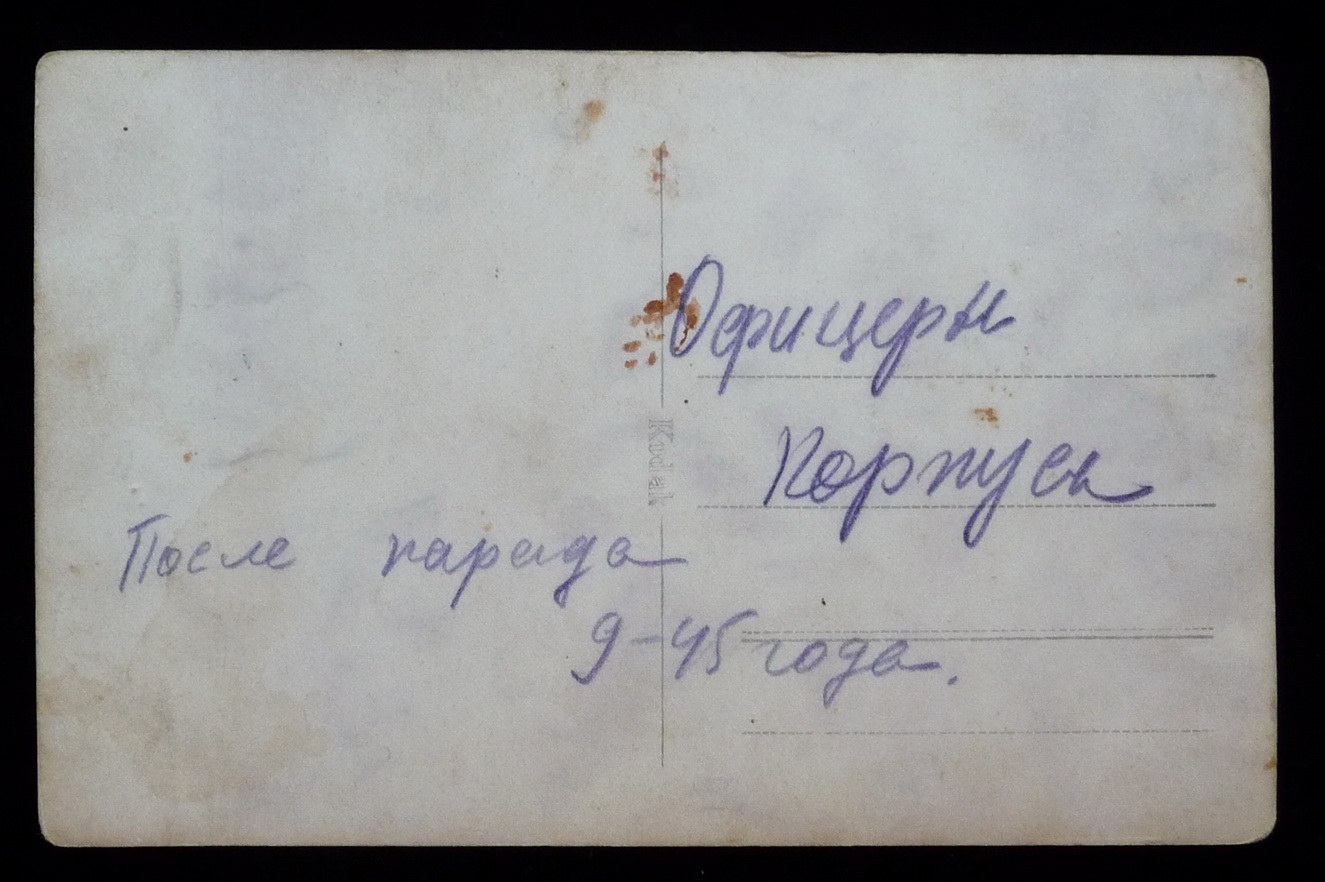 Офицеры
Корпуса
После парада
9-45 года.
Kodak